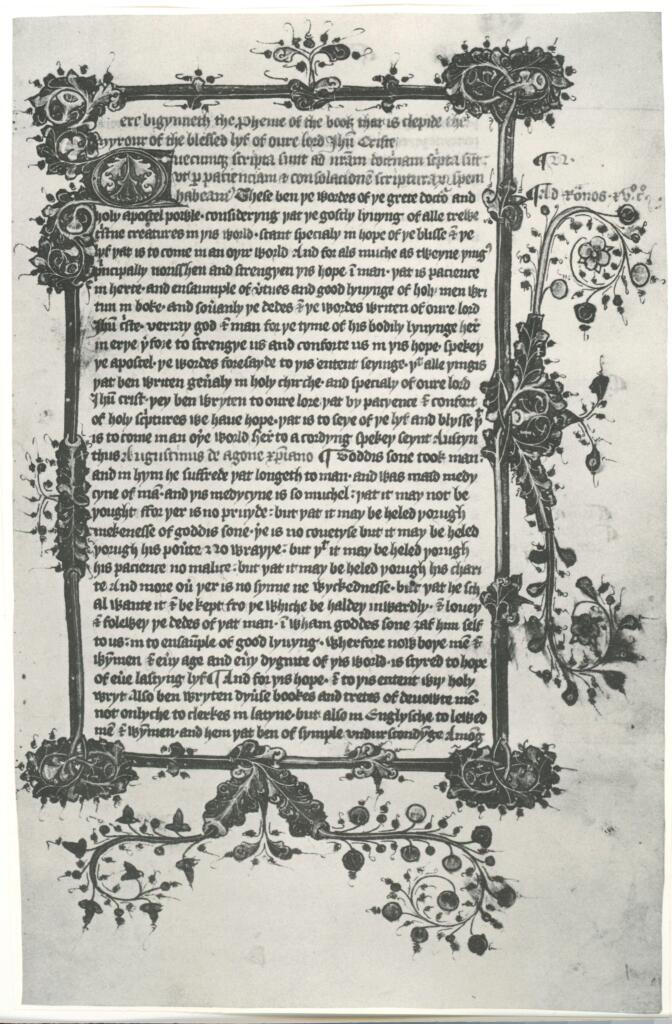 ere bigynneth the Pheme of the book that is clepide the
Myrour of the blessed lyf of oure lord Jhū Criste
Quecunq scripta sunt ad nrām doctrinam scpta sūt:
vt p pacienciam & consolacionē scripturarū spem
habeam9 These ben ye wordes of ye grete doctō and
holy apostel powle· consideryng yat ye gostly lyuyng of alle trewe
cristne creatures in yis world· stant specialy in hope of ye blisse & ye
lyf yat is to come in an oyre world And for als muche as tweyne yingꝭ
pncipally norisshen and strengyen yis hope ī man· yat is pacience
in herte· and ensaumple of vtues and good lyuynge of holy men wri
tun in boke· and souānly ye dedes & ye wordes writen of oure lord
Jhū cste· verray god & man for ye tyme of his bodily lyuynge her
in erye yfore to strengye us and conforte us in yis hope· spekey
ye apostel· ye wordes foresayde to yis entent seyinge· yt alle yingis
yat ben writen genāly in holy chirche· and specialy of oure lord
Jhū crist· yey ben wryten to oure lore yat by pacyence & confort
of holy scptures we haue hope· yat is to seye of ye lyf and blysse yt
is to come in an oye world Her to acordyng spekey seynt Austyn
thus Augustinus de agone xpiano ¶ Goddis sone took man·
and in hym he suffrede yat longeth to man· and was maad medy
cyne of mā· and yis medycyne is so muchel· yat it may not be
yought ffor yer is no pruyde· but yat it may be heled yorugh
mekenesse of goddis sone· ye is no couetyse but it may be heled
yorugh his pouerte no wrappe· but yt it may be heled yorugh
his pacience no malice· but yat it may be heled yorugh his chari
te And more ou yer is no synne ne wyckednesse· but yat he sch
al wante it & be kept fro ye whiche be haldey inwardly· & louey
& folewey ye dedes of yat man· ī wham goddes sone ȝaf him self
to us· in to ensaūple of good lyuyng· wherfore now boye mē &
wym̄en & euy age and euy dygnite of yis world· is styred to hope
of eue lastyng lyf ¶ And for yis hope· & to yis entent wiy holy
wryt also ben wryten dyuse bookes and tretes of deuowte mē·
not onlyche to clerkes in latyne· but also in Englysche to lewed
mē & wym̄en· and hem yat ben of symple vndurstondyge Amōg
Ad Rōnos· xvo co